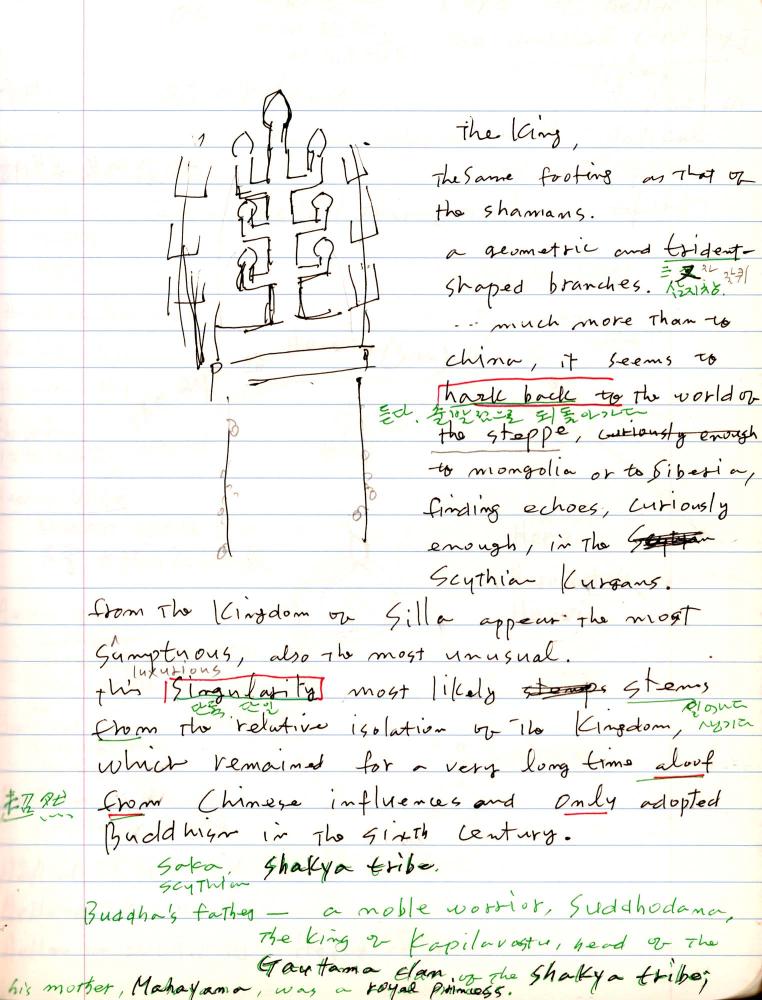 The King,
The Same footing as That of
the shamans.
a geometric and trident-
三叉 창 갈퀴
shaped branches. 삼지창.
... much more Than to
china, it seems to
hark back to the world of
듣다. 출발점으로 되돌아가다
the steppe, curiously enough
to mongolia or to Siberia,
finding echoes, curiously
enough, in The
Scythian Kurgans.
from The Kingdom of Silla appear The most
Sumptuous, also The most unusual.
luxurious
this Singularity most likely stems
단독 단일 일어나다
from The relative isolation of The Kingdom, 생기다
which remained for a very long time aloof
超然 from Chinese influences and only adopted
Buddhism in The Sixth Century.
Saka, Shakya tribe.
Scythian
Buddha's father — a noble worrior, Suddhodana,
The King of Kapilavastu, head of The
Gautama clan of the Shakya tribe;
his mother, Mahayama, was a royal princess.